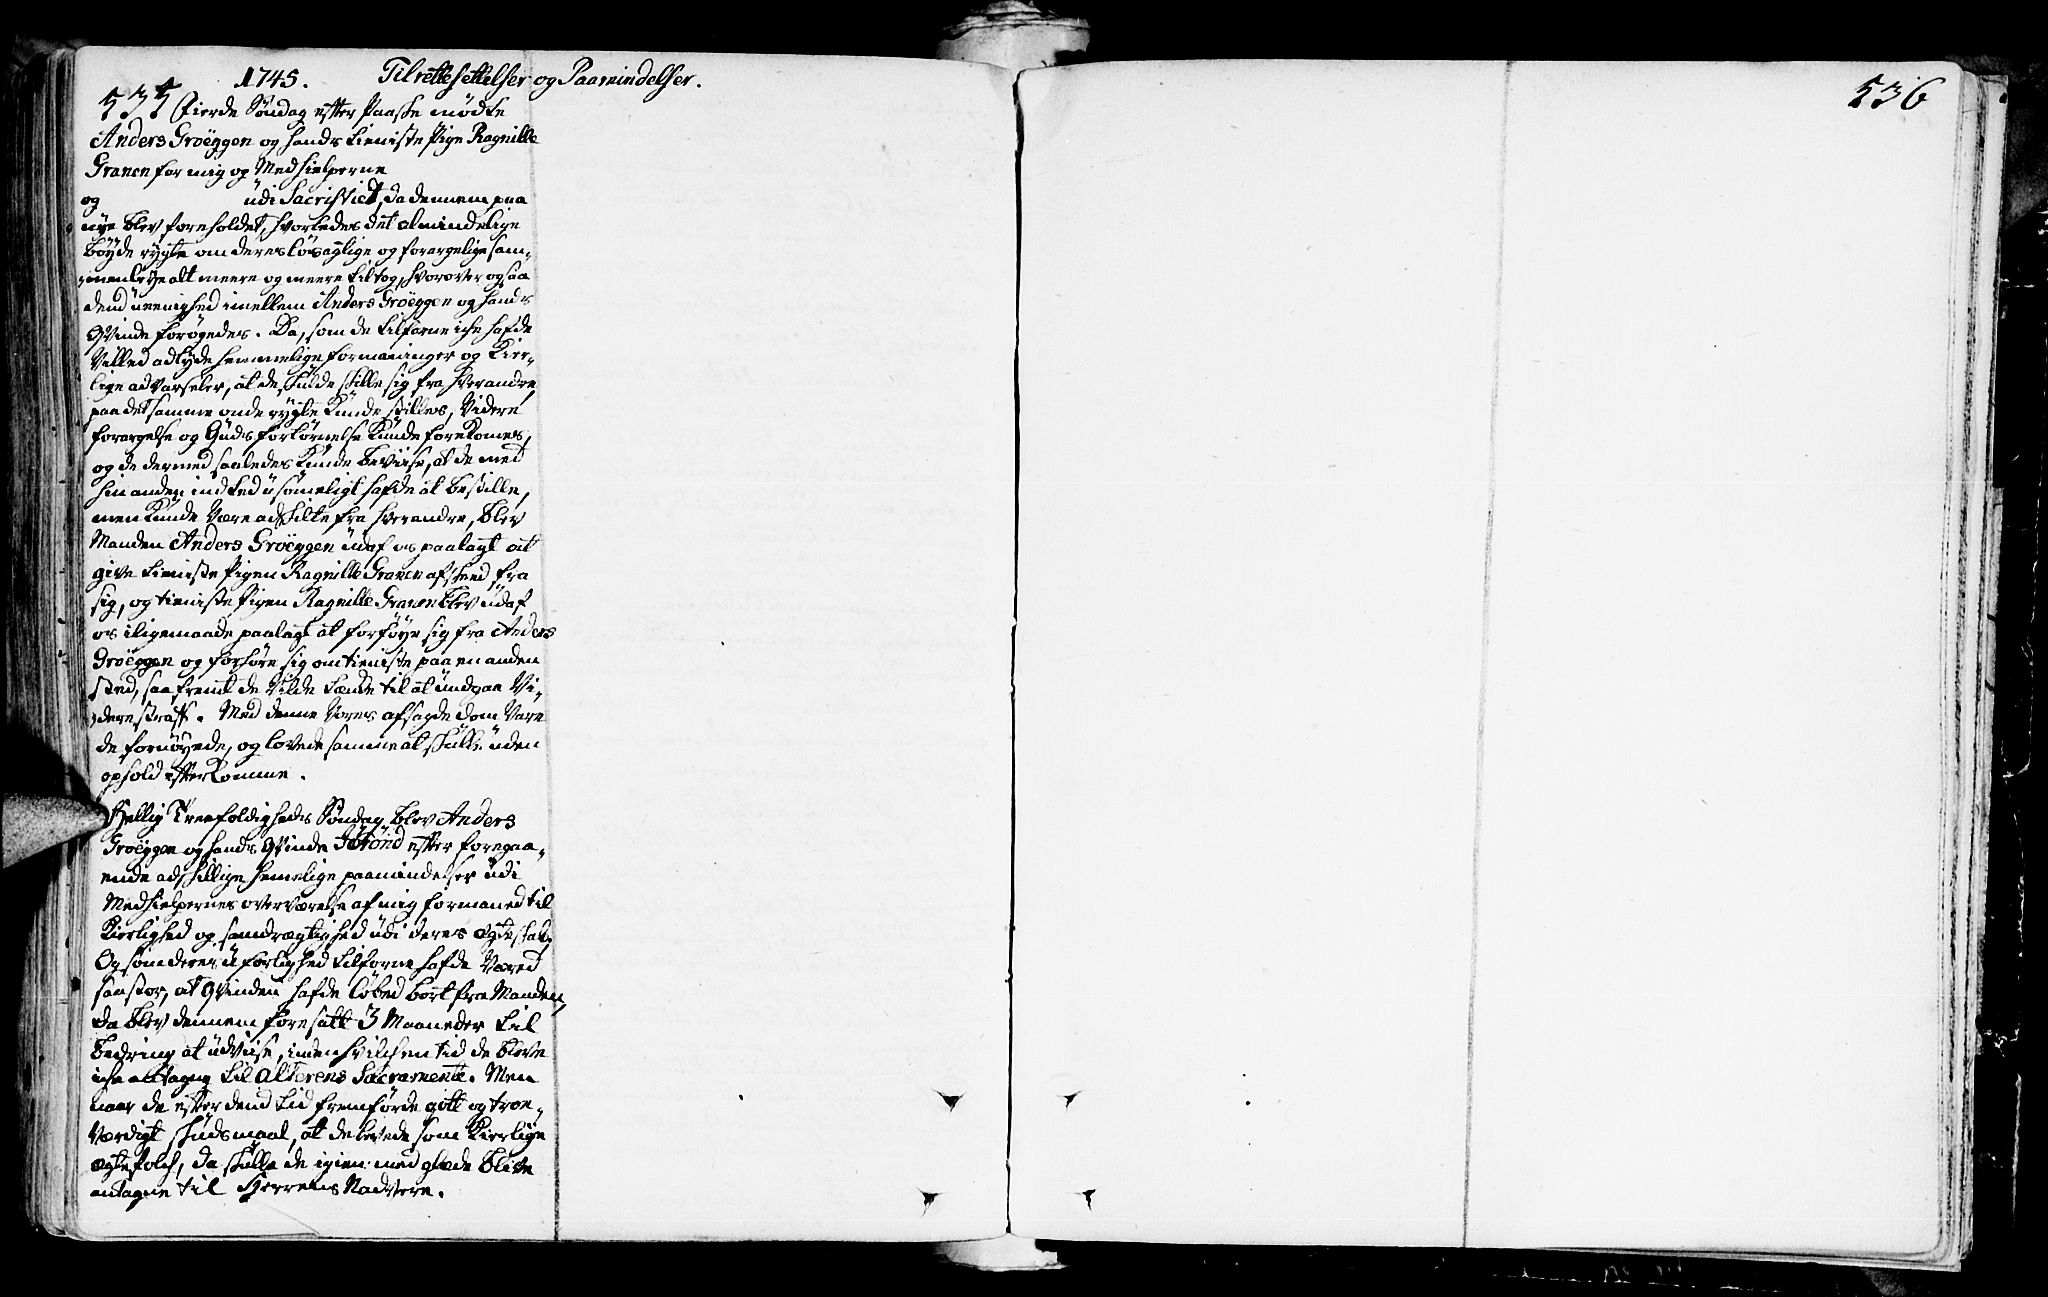 535
1745. Tilrettesettelser og Paamindelser.
536
Fierde Søndag efter Paaske mødte
Anders Groëggen og hands tieniste Pige Ragnille
Granen for mig og Medhielperne
og udi Sacristiet, da dennem paa
nye blev foreholdet, hvorledes det almindelige
bøyde rygte om deres løsaglige og forargelige sam-
menleye alt meere og meere tiltog, hvorover ogsaa
dend ueenighed imellem Anders Groëggen og hands
Qvinde forøgedes. Da, som de tilforne iche hafde
Villed adlyde hemmelige formaninger og Kier-
lige advarseler, at de skulde skille sig fra hverandre,
paa det samme onde rygte Kunde stilles, Videre
forargelse og Guds fortørnelse Kunde forekomes,
og de dermed saaledes Kunde beviise, at de med
hinanden intted usømeligt hafde at bestille,
men Kunde Være adskilte fra hverandre, blev
Manden Anders Groëggen udaf os paalagt at
give tieniste Pigen Ragnille Granen afskeed fra
sig, og tieniste Pigen Ragnille Granen blev udaf
os iligemaade paalagt at forføye sig fra Anders
Groëggen og forhøre sig om tieniste paa en anden
sted, saa fremt de Vilde tænke til at undgaa Vi-
dere straff. Med denne Vores afsagde dom Vare
de fornøyede, og lovede samme at skulle uden
ophold efterkomme.
Hellig Treefoldigheds Søndag blev Anders
Groëggen og hands Qvinde Jørønd efter foregaa-
ende adskillige hemelige paamindelser udi
Medhielpernes overværelse af mig formaned til
Kierlighed og samdrægtighed udi deres ægteskab.
Og som deres uforlighed tilforne hafde Væred
saa stor, at Qvinden hafde løbed bort fra Manden,
da blev dennem foresatt 3 Maaneder til
bedring at udviise, inden hvilchen tid de bleve
iche antagne til Alterens Sacramente. Men
naar de efter dend tid fremførde gott og troe-
Værdigt skudsmaal, at de levede som Kierlige
ægtefolch, da skulle de igien med glæde blive
antagne til Herrens Nadvere.